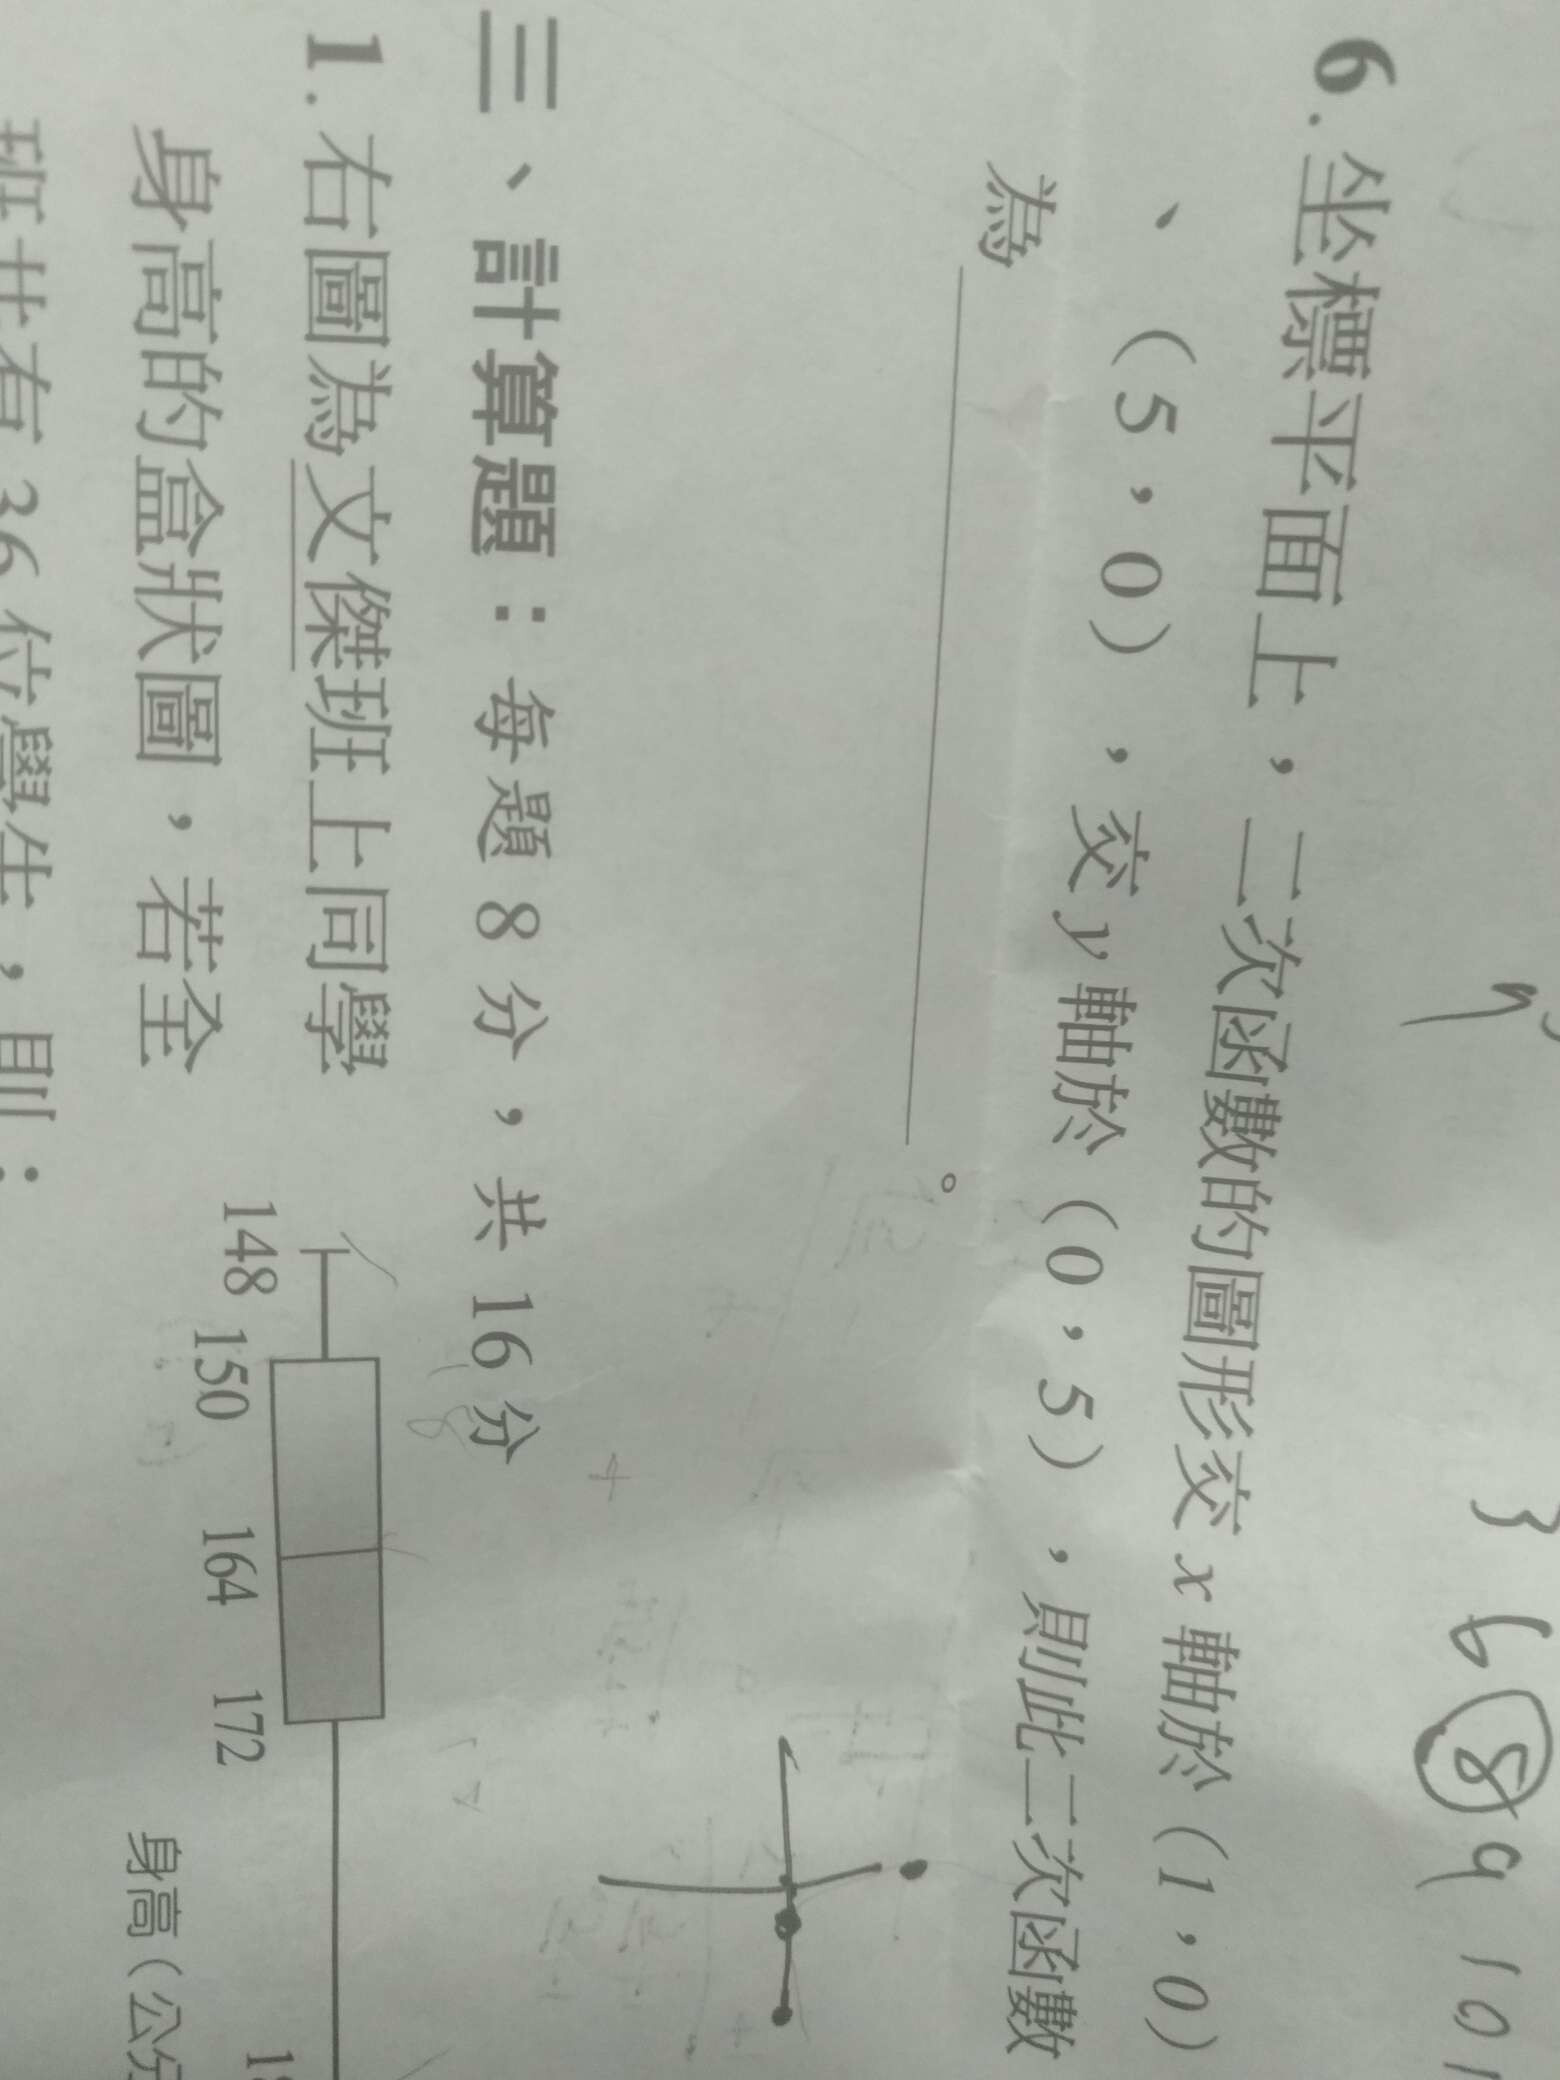 3 6 8 9 10 1
6.坐標平面上，二次函數的圖形交 x 軸於（1，0）
、（5，0），交 y 軸於（0，5），則此二次函數
為 。
三、計算題：每題 8 分，共 16 分
1.右圖為文傑班上同學
身高的盒狀圖，若全
班共有 36 位學生，則：
148 150 164 172
身高（公分